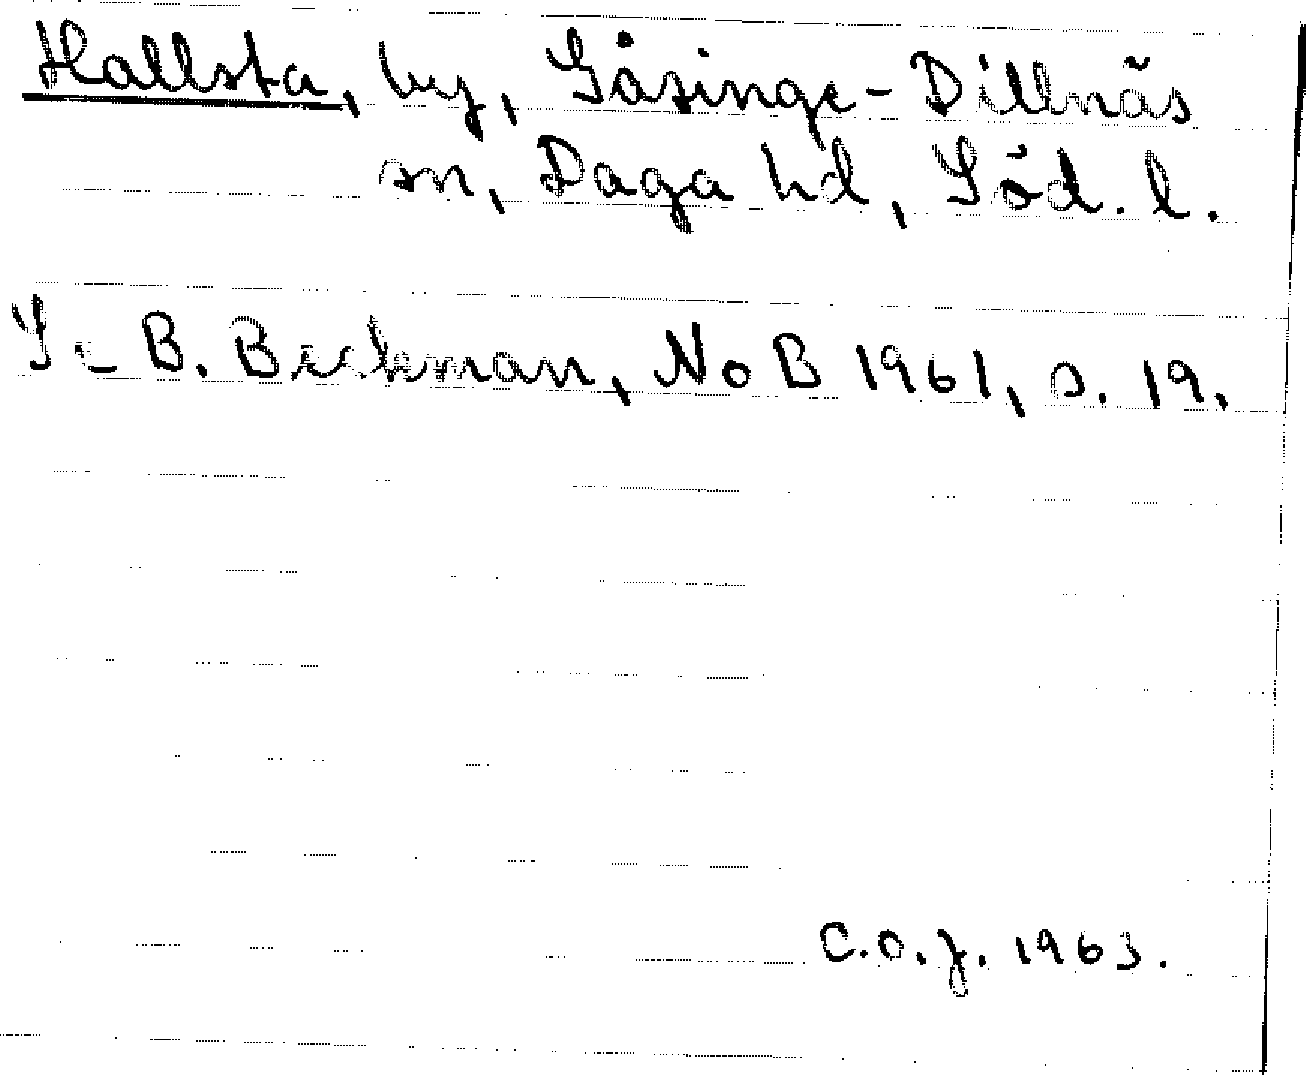 Hallsta, by, Gåsinge-Dillnäs
sn, Daga hd, Söd. l.
Se B. Beckman, NoB 1961, s. 19.
C.O.J. 1963.